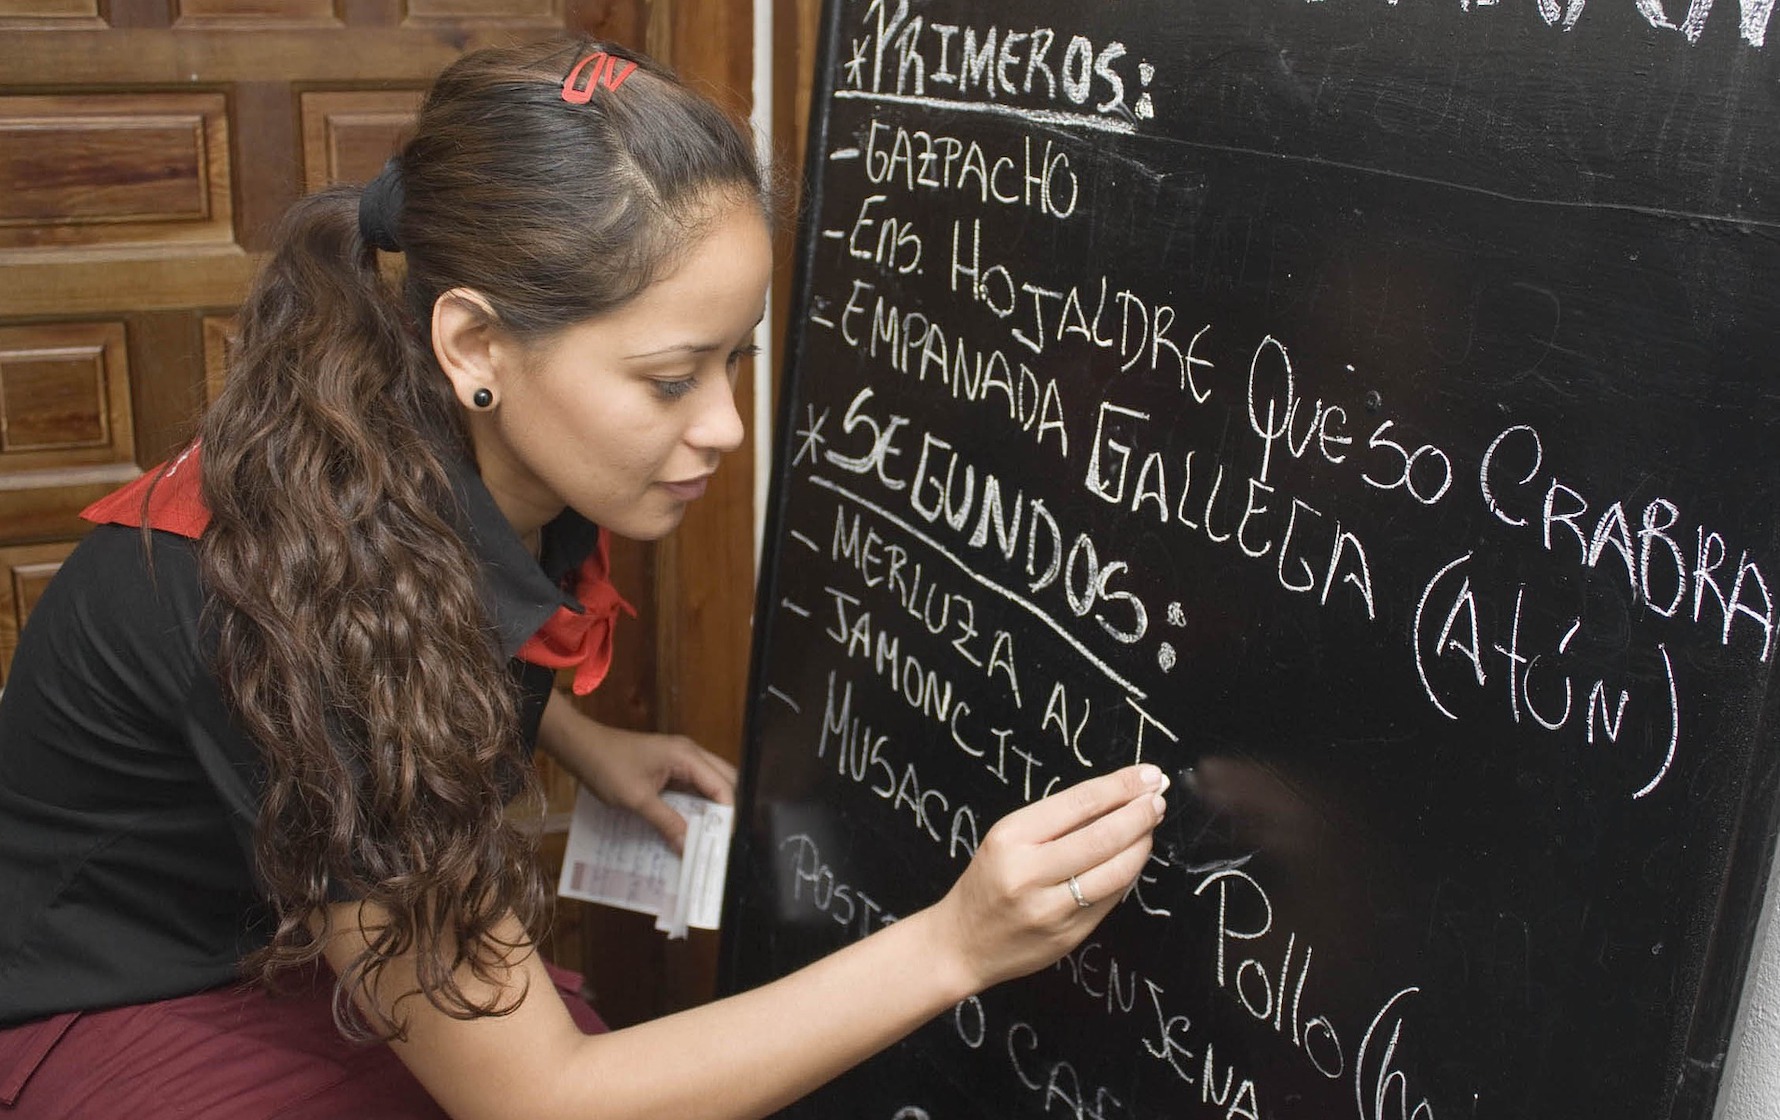 *PRIMEROS:
-GAZPACHO
-Ens. HOJALDRE QUESO CRABRA
-EMPANADA GALLEGA (Atún)
*SEGUNDOS:
- MERLUZA AL T
- JAMONCITO POLLO (h
- MUSACA ENJENA
POST O CAF